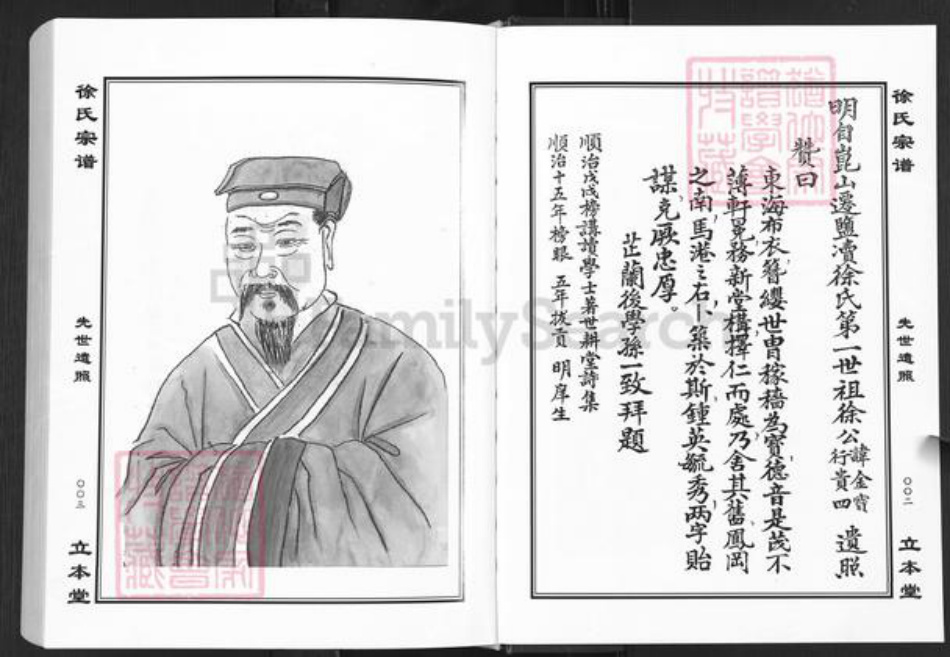 徐氏宗谱
先世遺照
〇〇二
立本堂
明自崑山遷鹽瀆徐氏第一世祖徐公諱金寶行貴四遺照
贊曰
東海布衣簪纓世冑稼穡為寶德音是茂不
薄軒冕務新堂構擇仁而處乃舍其舊鳳岡
之南馬港之右卜築於斯鍾英毓秀兩字貽
謀克厥忠厚。
芷蘭後學孫一致拜題
順治戊戌榜講讀學士著世耕堂詩集
順治十五年榜眼 五年拔貢 明庠生
徐氏宗谱
先世遺照
〇〇三
立本堂
FamilySearch